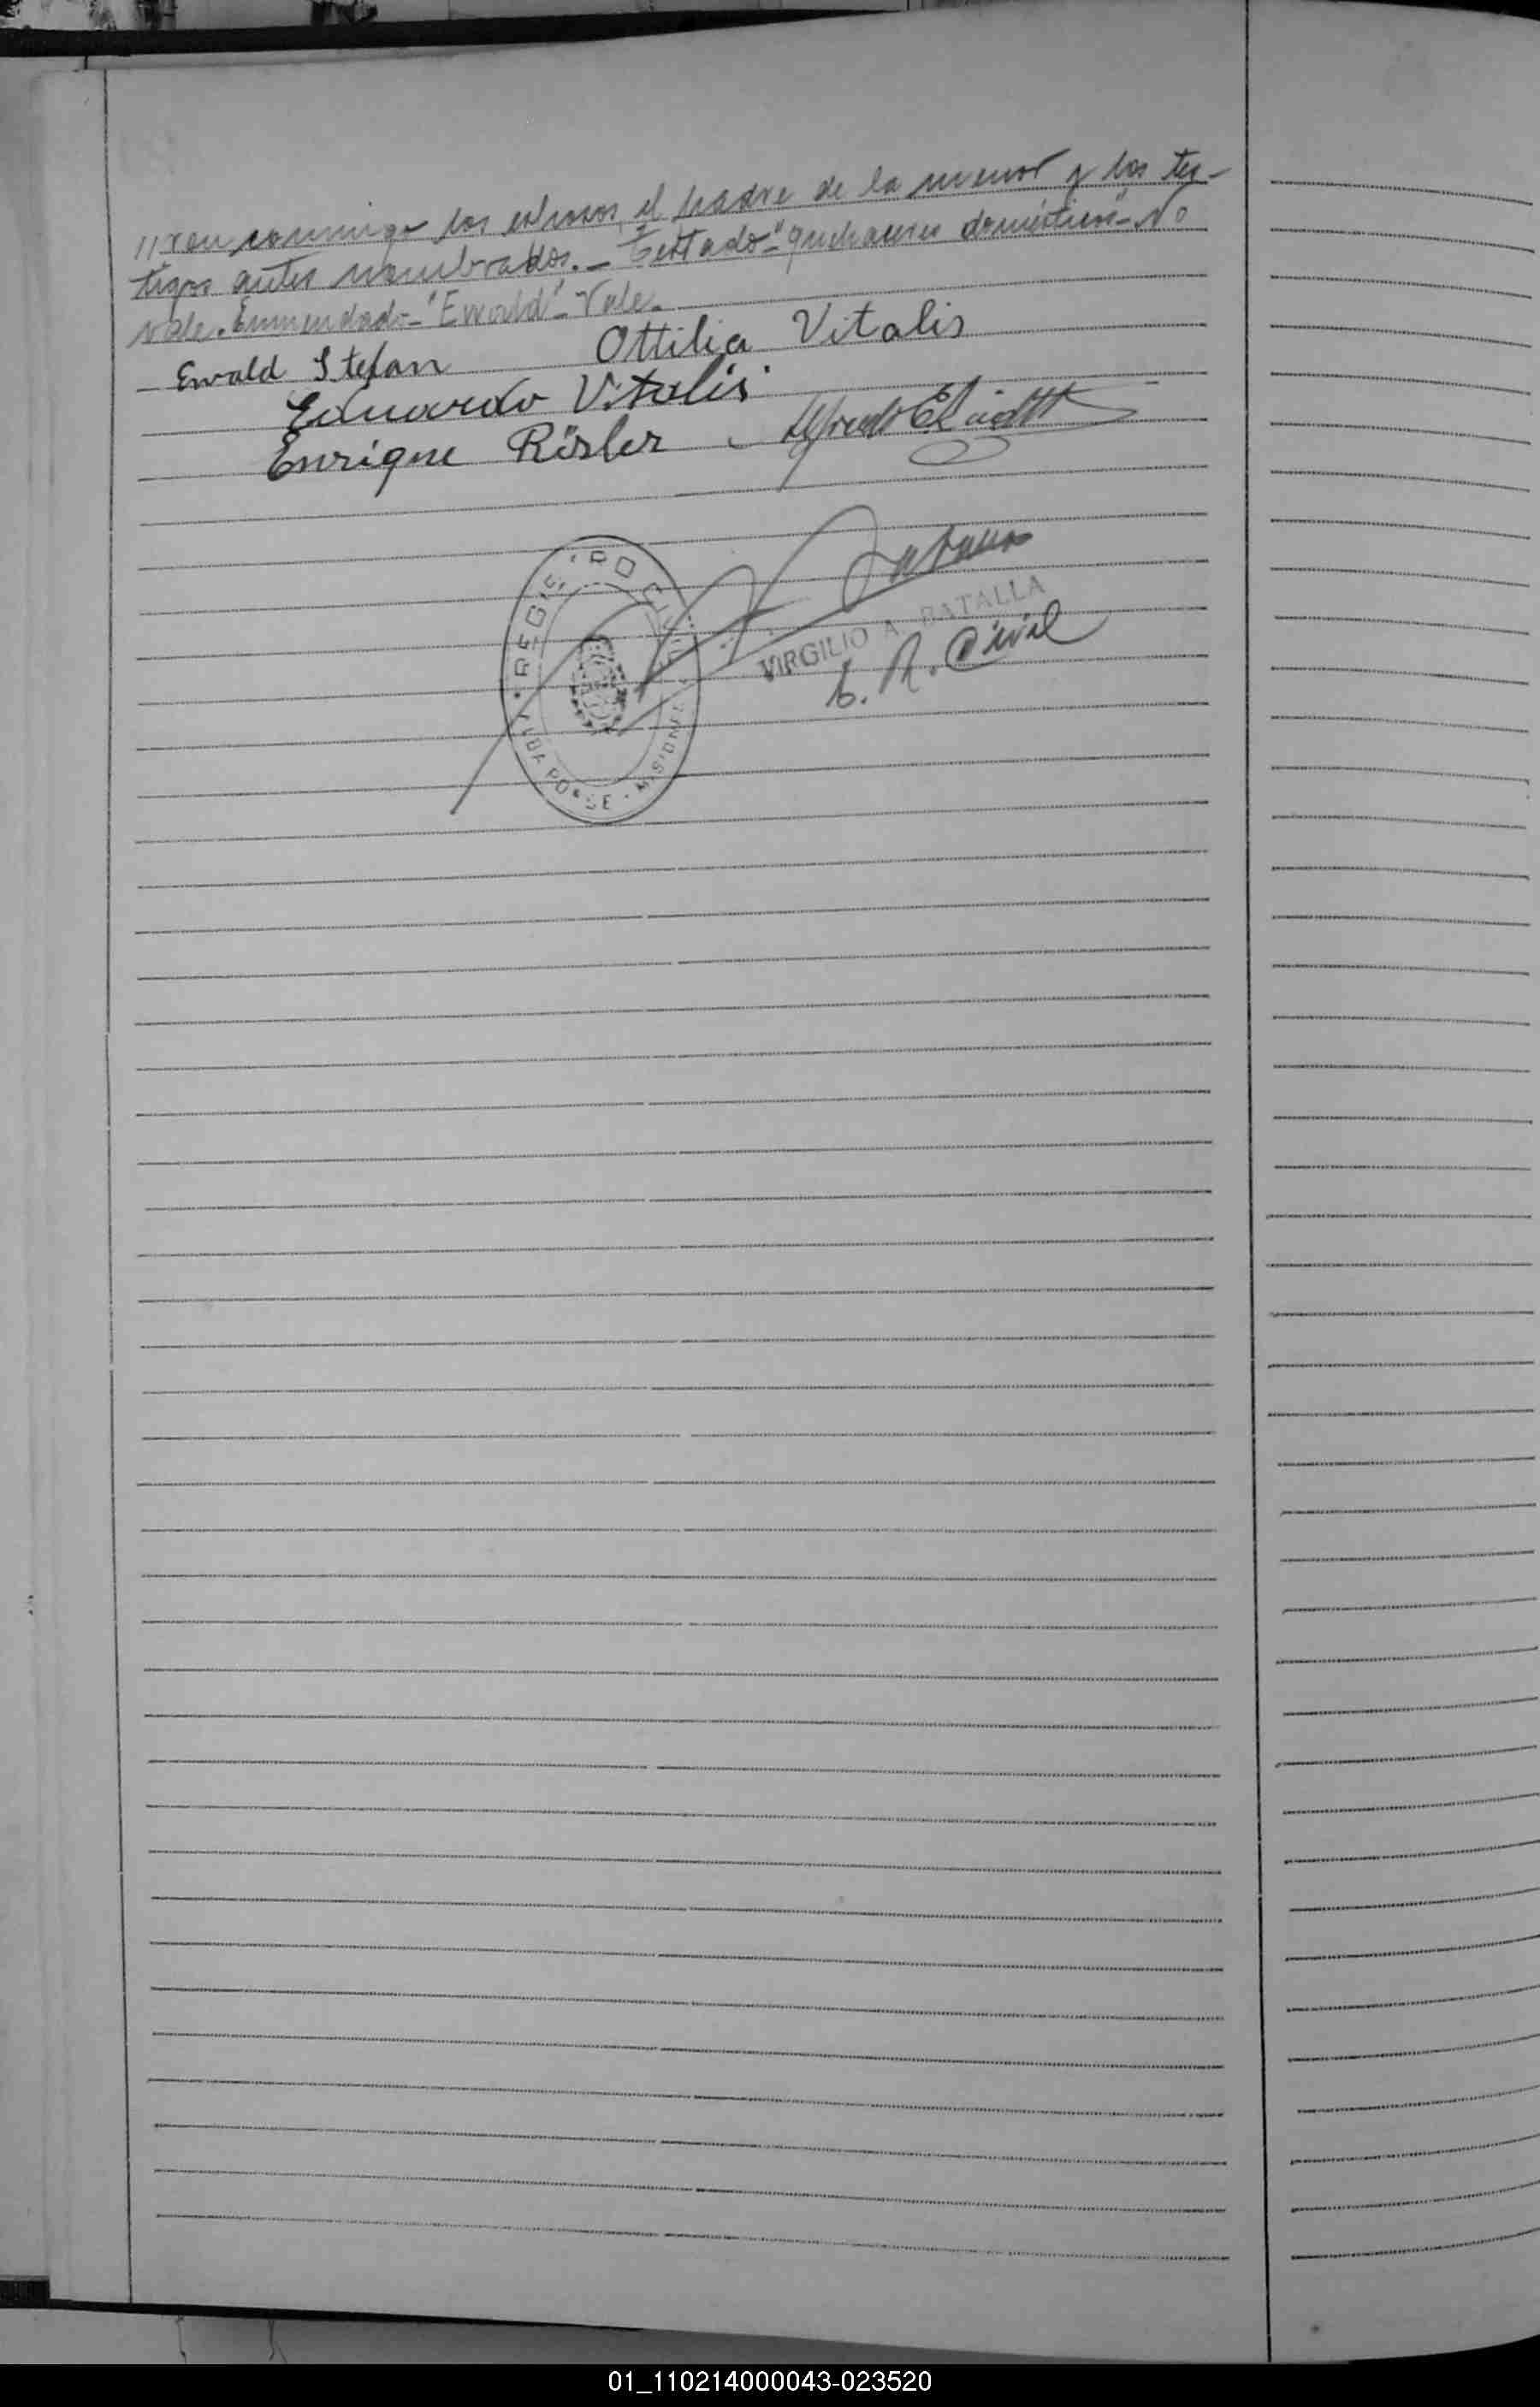 //ron conmigo los esposos, el padre de la menor y los tes-
tigos antes nombrados.- Testado-"quehaceres domésticos"-No
vale. Enmendado-"Ewald"-Vale.-
Ewald Stefan Ottilia Vitalis
Eduardo Vitalis
Enrique Rösler Alfredo
REGISTRO CIVIL
MISIONES
VIRGILIO A. BATALLA
E. R. Civil
01_110214000043-023520